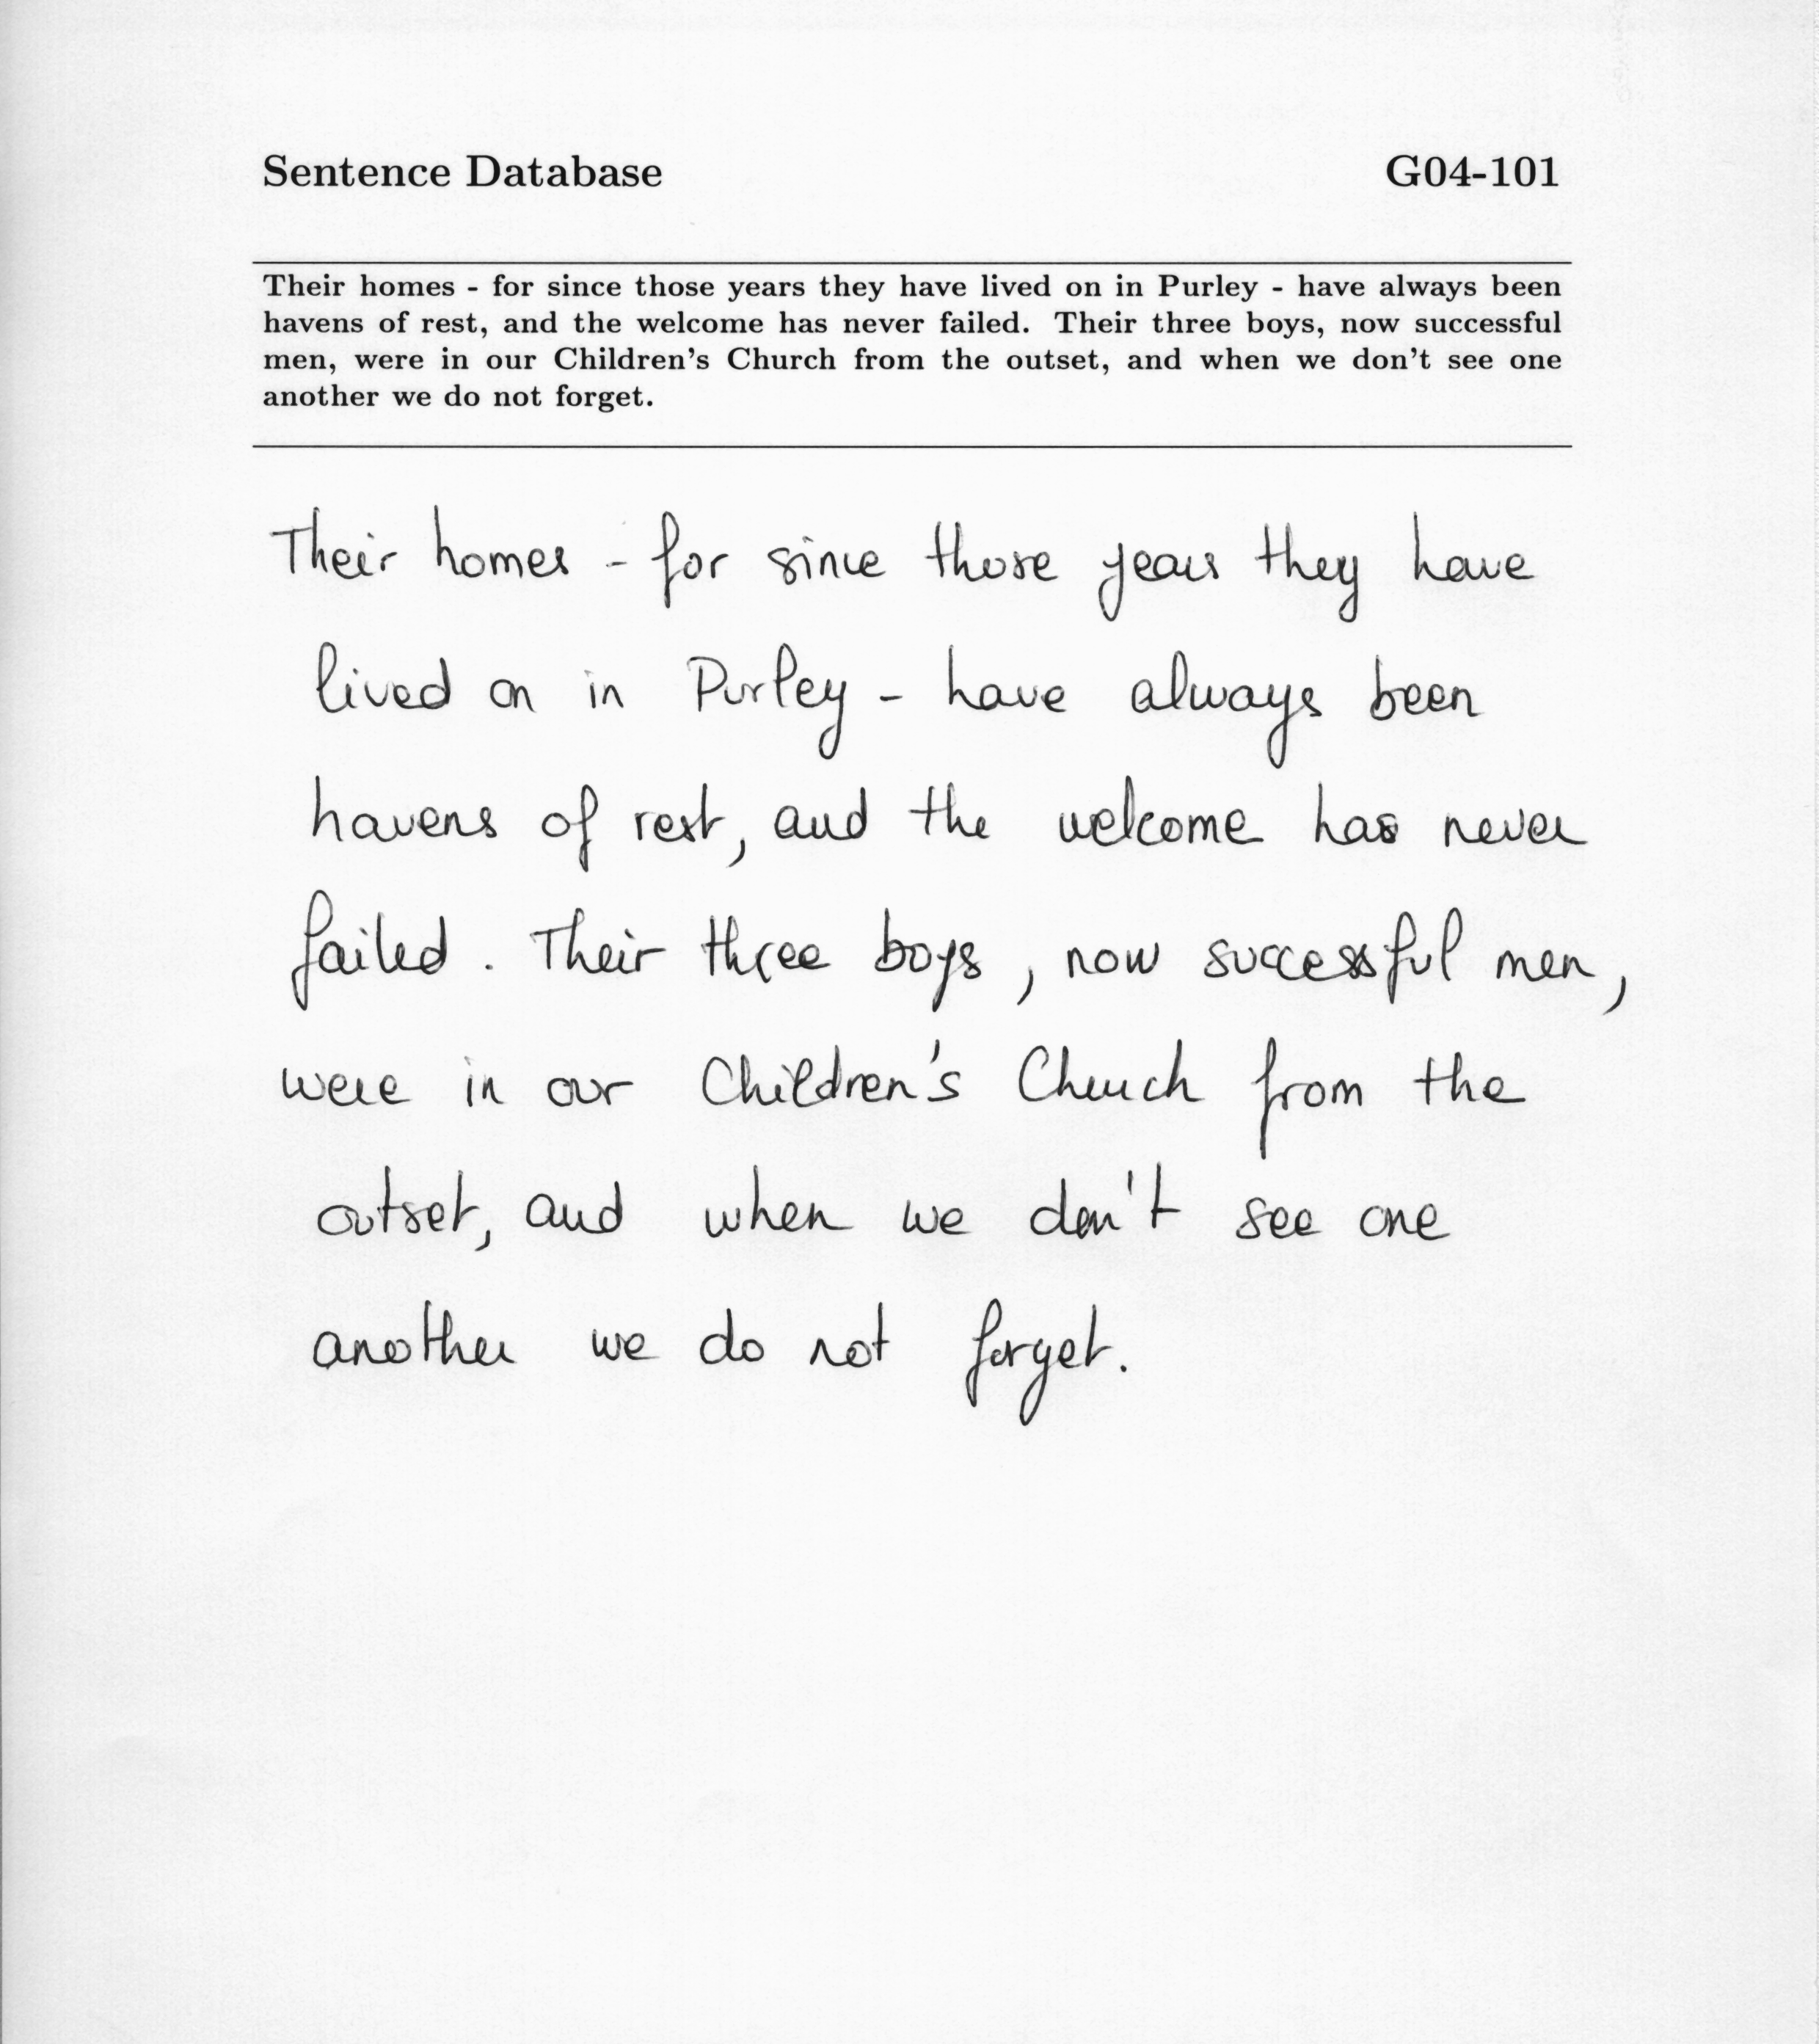 Sentence Database G04-101
Their homes - for since those years they have lived on in Purley - have always been
havens of rest, and the welcome has never failed. Their three boys, now successful
men, were in our Children's Church from the outset, and when we don't see one
another we do not forget.
Their homes - for since those years they have
lived on in Purley - have always been
havens of rest, and the welcome has never
failed. Their three boys, now successful men,
were in our Children's Church from the
outset, and when we don't see one
another we do not forget.